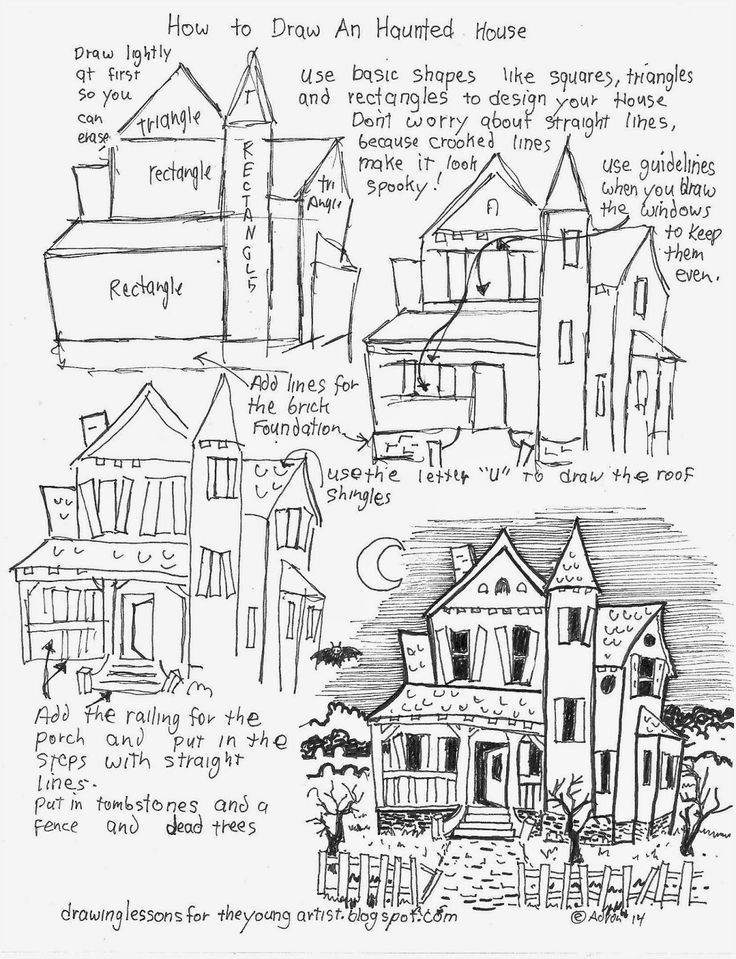 How to Draw An Haunted House
Draw lightly
at first
so you
can
erase
use basic shapes like squares, triangles
and rectangles to design your House
Dont worry about straight lines,
because crooked lines
make it look
spooky!
triangle
rectangle
Rectangle
T
RECTANGLE
tri
Angle
use guidelines
when you draw
the windows
to keep
them
even.
Add lines for
the brick
Foundation
use the letter "U" to draw the roof
shingles
Add the railing for the
porch and put in the
steps with straight
lines.
put in tombstones and a
fence and dead trees
drawinglessonsfortheyoungartist.blogspot.com
© Adron '14